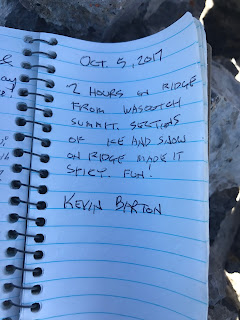 Oct. 5, 2017
2 HOURS ON RIDGE
FROM WASCOTCH
SUMMIT. SECTIONS
OF ICE AND SNOW
ON RIDGE MADE IT
SPICY. FUN!
KEVIN BARTON